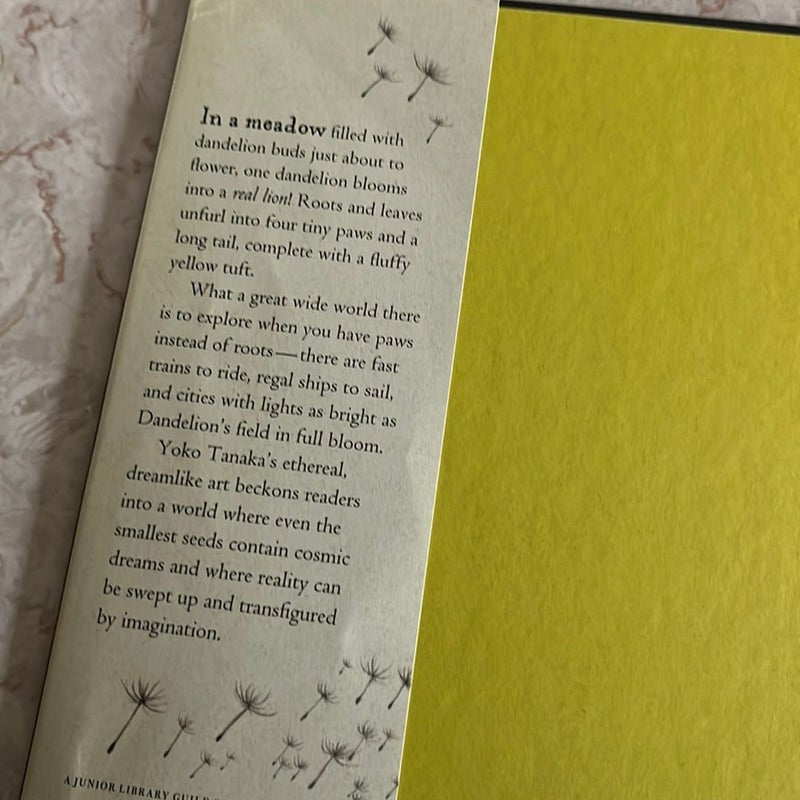 In a meadow filled with
dandelion buds just about to
flower, one dandelion blooms
into a real lion! Roots and leaves
unfurl into four tiny paws and a
long tail, complete with a fluffy
yellow tuft.
What a great wide world there
is to explore when you have paws
instead of roots—there are fast
trains to ride, regal ships to sail,
and cities with lights as bright as
Dandelion's field in full bloom.
Yoko Tanaka's ethereal,
dreamlike art beckons readers
into a world where even the
smallest seeds contain cosmic
dreams and where reality can
be swept up and transfigured
by imagination.
A JUNIOR LIBRARY GUILD